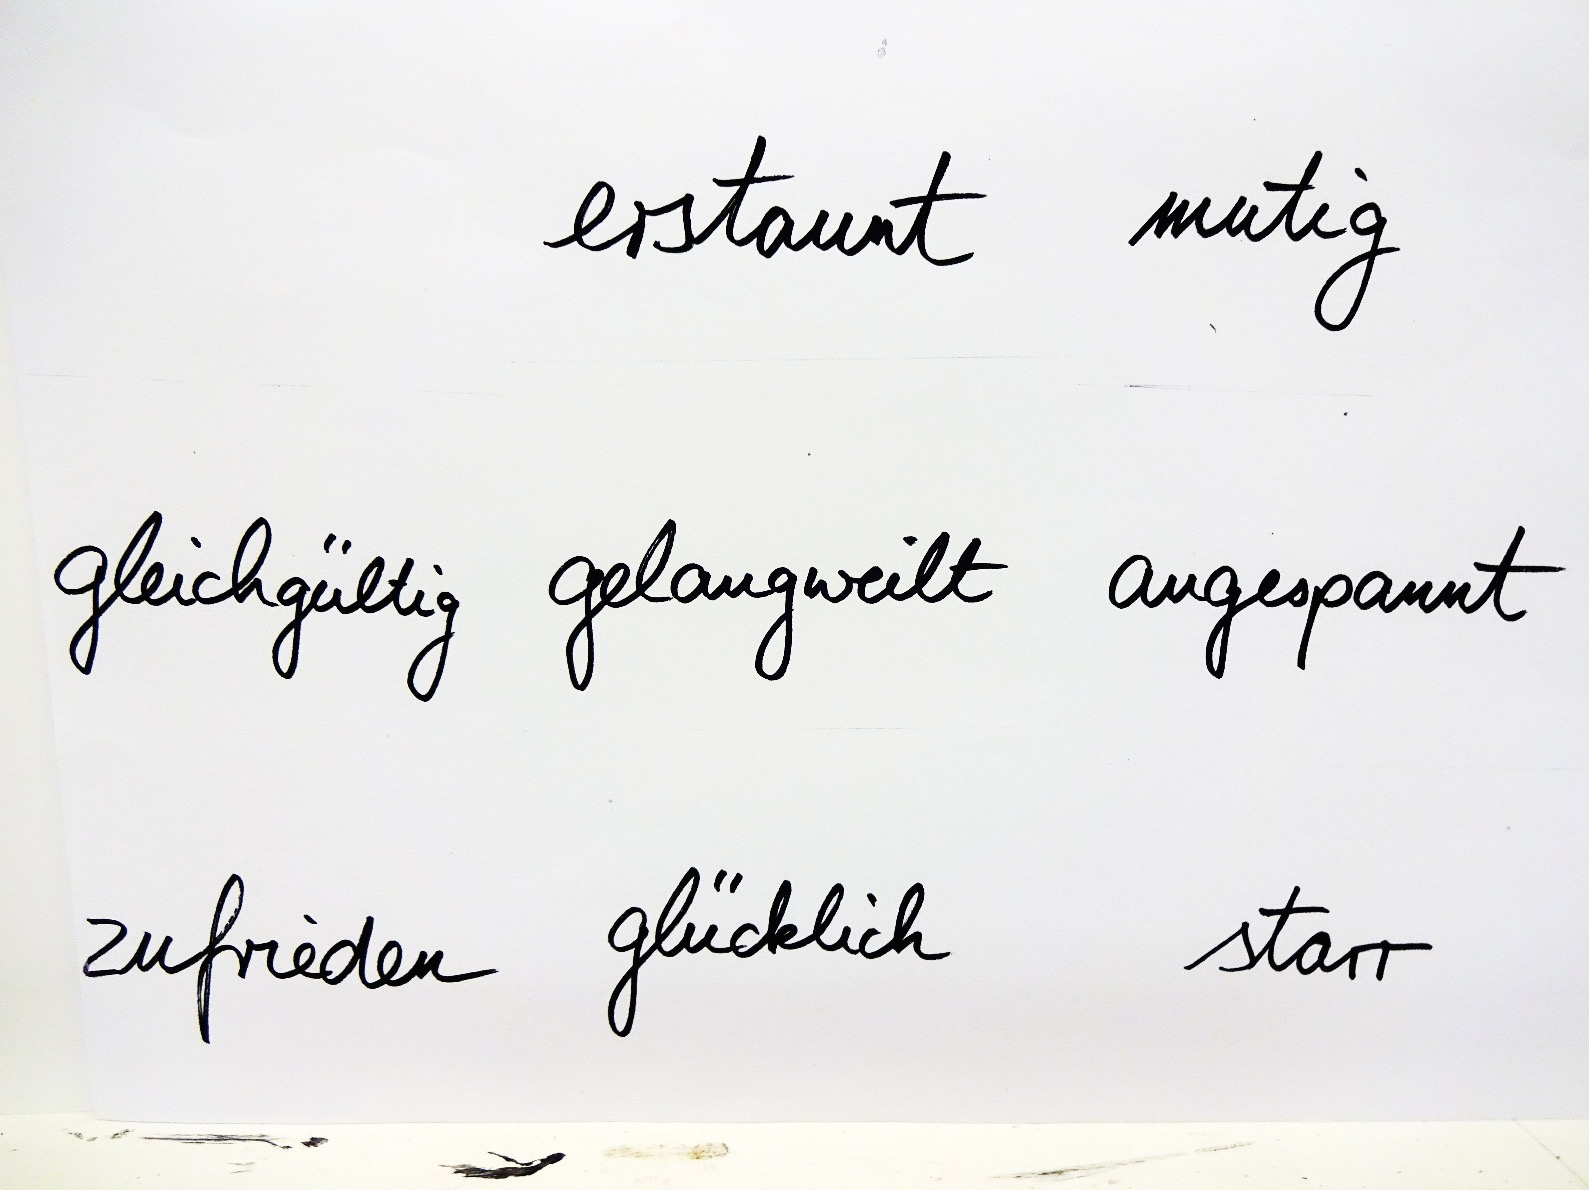 erstaunt mutig
gleichgültig gelangweilt angespannt
zufrieden glücklich starr